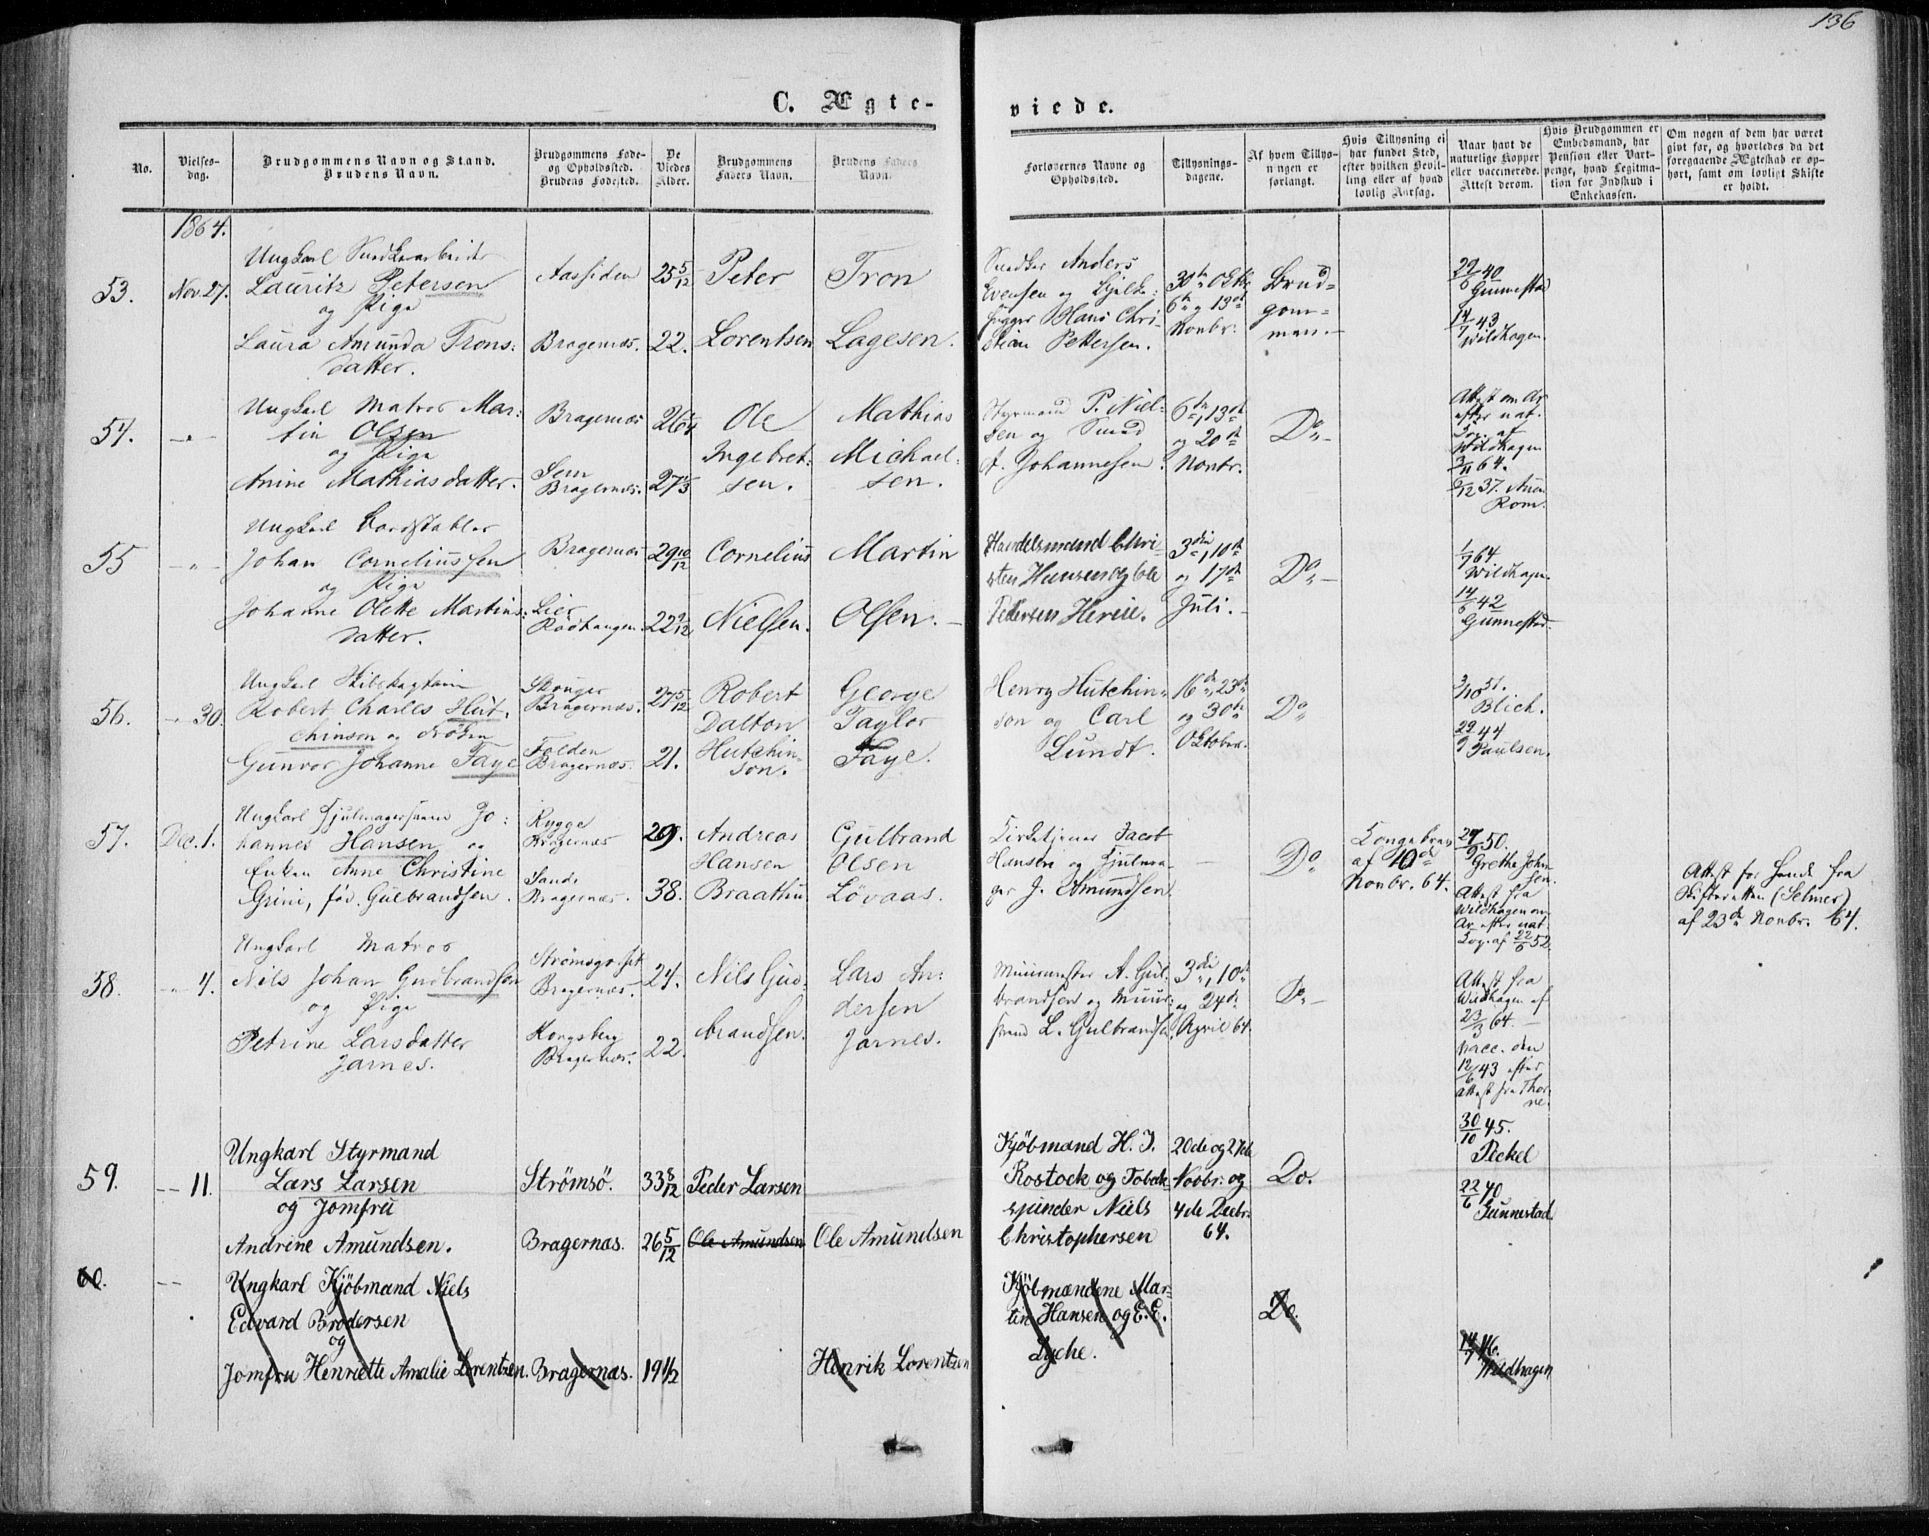 136
C. Ægte-
viede.
No.
Vielses-
dag.
Brudgommens Navn og Stand.
Brudens Navn.
Brudgommens Føde-
og Opholdssted.
Brudens Fødested.
De
Viedes
Alder.
Brudgommens
Faders Navn.
Brudens Faders
Navn.
Forlovernes Navne og
Opholdssted.
Tillysnings-
dagene.
Af hvem Tillys-
ningen er
forlangt.
Hvis Tillysning ei
har fundet Sted,
efter hvilken Bevil-
ling eller af hvad
lovlig Aarsag.
Naar havt de
naturlige Kopper
eller vaccinerede.
Attest derom.
Hvis Brudgommen er
Embedsmand, har
Pension eller Vart-
penge, hvad Legitima-
tion for Indskud i
Enkekassen.
Om nogen af dem har været
gift før, og hvorledes da det
foregaaende Ægteskab er op-
hørt, samt om lovligt Skifte
er holdt.
1864.
53.
Nov. 27.
Ungkarl Snedkerarbeider
Lauritz Petersen
og Pige
Laura Amunda Trons-
datter.
Aassiden
Bragernæs.
25 5/12
22.
Peter
Lorentsen
Tron
Lagesen.
Snedker Anders
Evensen og
Hans Chri-
stian Pettersen.
30te Oktbr.
6te og 13de
Novbr.
Brud-
gom-
men.
22/6 40
Gunnestad
14/7 43
Wildhagen.
54.
— " —
Ungkarl Matros Mar-
tin Olsen
og Pige
Anine Mathiasdatter.
Bragernæs
Sem
Bragernæs.
Ole
Ingebret-
sen.
Mathias
Michael-
sen.
Styrmand P. Niel-
sen og Smed
A. Johannesen.
6te, 13de
og 20de
Novbr.
Do. —
Attest om Ar
efter nat.
Kop. af
Wildhagen
3/11 64.
55
— " —
Ungkarl Bordstabler
Johan Corneliussen
og Pige
Johanne Olette Martins-
datter.
Bragernæs
Lier
Rødtangen
29 10/12
22 9/12
Cornelius
Nielsen.
Martin
Olsen. —
Handelsmand Chri-
sten Hansen og Ole
Pedersen
3die, 10de
og 17de
Juli. —
Do. —
1/7 64
Wildhagen.
14/6 42
Gunnestad.
56.
— " 30.
Ungkarl Skibskaptain
Robert Charles Hut-
chinson og Frøken
Gunvor Johanne Faye
Skouger
Bragernæs.
Folden
Bragernæs.
27 5/12
21.
Robert
Dalton
Hutchin-
son.
George
Taylor
Faye.
Henry Hutchin-
son og Carl
Lundt.
16de, 23de
og 30te
Oktober.
Do
Blich.
29/9 44
Paulsen.
57.
Dec. 1.
Ungkarl Hjulmagersvend Jo-
hannes Hansen og
Enken Anne Christine
Grini, fød. Gulbrandsen.
Rygge
Bragernæs
Sande
Bragernæs.
29.
38.
Andreas
Hansen
Braathen
Gulbrand
Olsen
Løvaas.
Kirketjener Jacob
Hansen og Hjulma-
ger J. Amundsen.
—
Do
Kongebrev
af 10de
Novbr. 64.
Grethe John-
sen.
Attest fra
Wildhagen om
Ar efter nat.
Kop. af 22/6 52.
Attest for Hende fra
Skifteretten (Selmer)
af 23de Novbr. 64.
58.
— " 4.
Ungkarl Matros
Nils Johan Gudbrandsen
og Pige
Petrine Larsdatter
Jarnes.
Strømsgodset
Bragernæs.
Kongsberg
Bragernæs.
24.
22.
Nils Gud-
brandsen.
Lars An-
dersen
Jarnes.
Muurmester A. Gul-
brandsen og Muur-
svend L. Gulbrandsen
3die, 10de
og 24de
April 64.
Do —
Attest fra
Wildhagen af
23/3 64. —
Vacc. den
12/6 43 efter
Attest fra Thor-
ne.
59.
— — 11.
Ungkarl Styrmand
Lars Larsen
og Jomfru
Andrine Amundsen.
Strømsö.
Bragernæs.
33 8/12
26 5/12
Peder Larsen
Ole Amundsen
Ole Amundsen
Kjöbmand H. J.
Rostock og Tobak-
spinder Niels
Christophersen
20de og 27de
Novbr. og
4de Decbr.
64.
Do.
30/10 45.
Pickel
22/6 40
Gunnestad
60.
— —
Ungkarl Kjöbmand Niels
Edvard Brodersen
og
Jomfru Henriette Amalie Lorentzen.
Bragernæs.
Henrik Lorentzen
Kjöbmændene Mar-
tin Hansen og E. E.
Lyche.
Do.
14/7 46.
Wildhagen